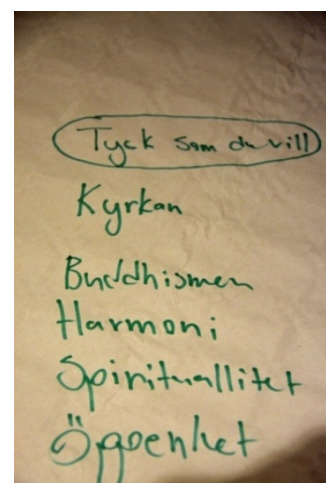 Tyck som du vill
Kyrkan
Buddhismen
Harmoni
Spirituallitet
Öppenhet